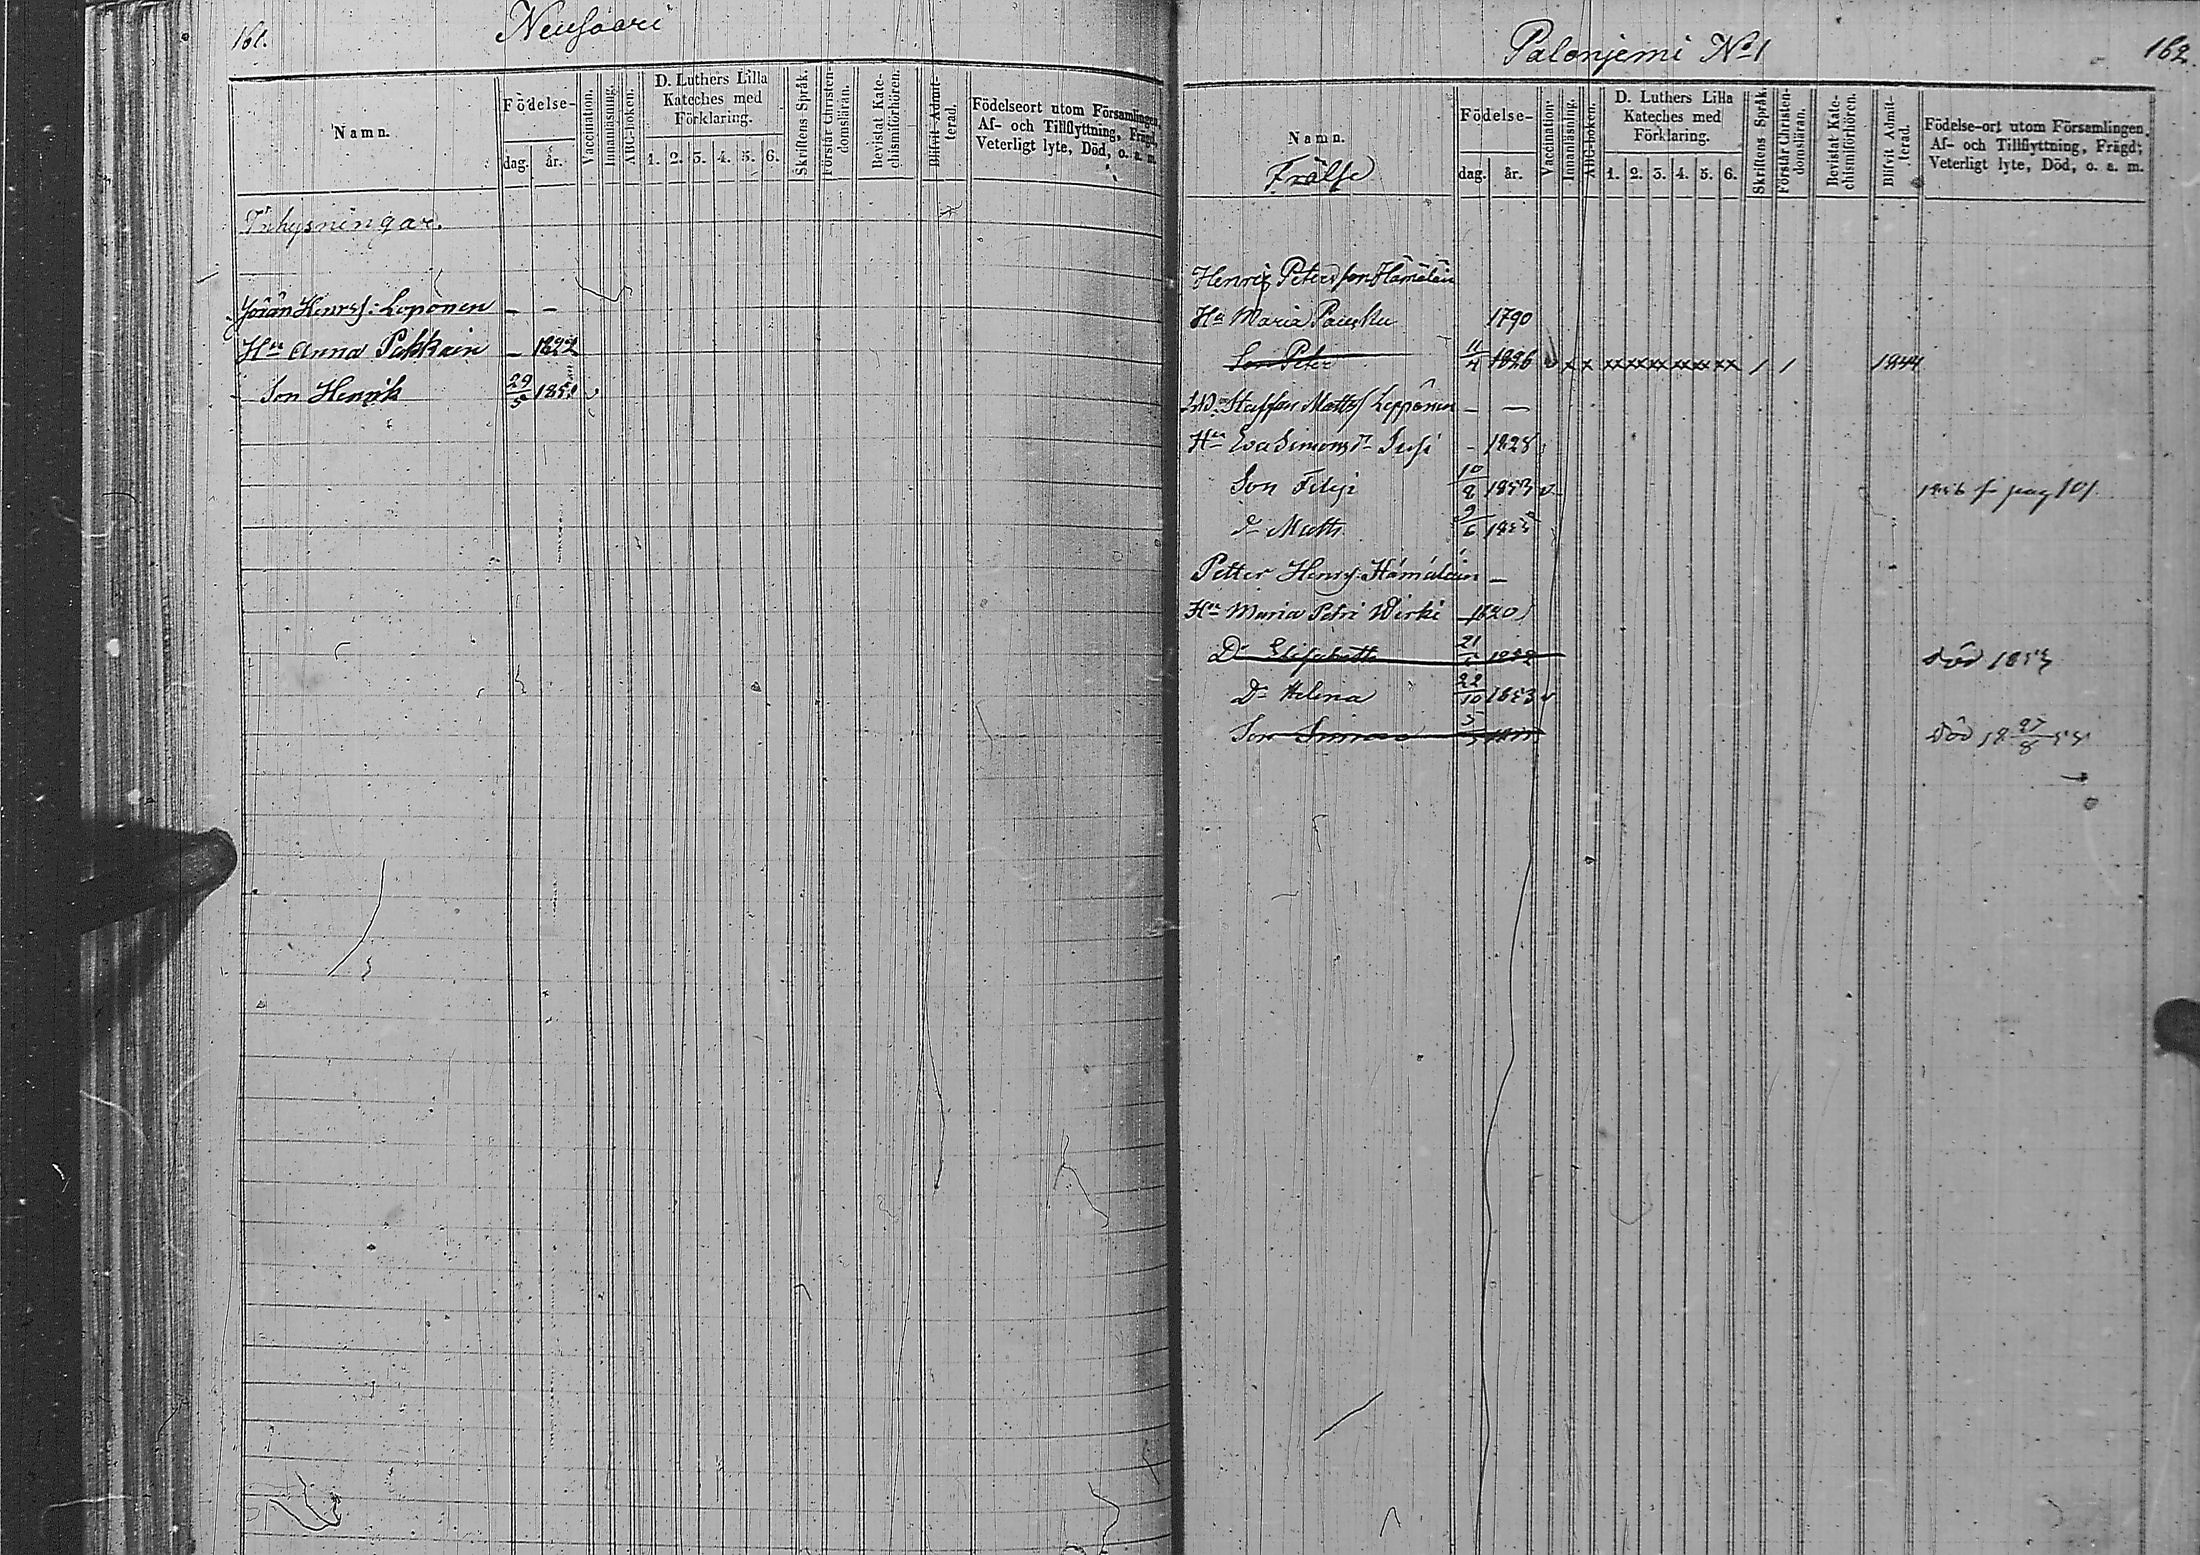 161.
Neusaari
Namn.
Födelse-
dag. år.
Vaccination.
Innanläsning.
ABC-boken.
D. Luthers Lilla
Kateches med
Förklaring.
1. 2. 3. 4. 5. 6.
Skriftens Språk.
Förstår Christen-
domsläran.
Bevistat Kate-
chismiförhören.
Blifvit Admit-
terad.
Födelseort utom Församlingen,
Af- och Tillflyttning, Frägd,
Veterligt lyte, Död, o. a. m.
Inhysningar.
Jöran Henrss: Loponen — —
Hu Anna Pekkain — 1822
Son Henrik 29/5 1851 v
Palonjemi No 1
162.
Namn.
Frälse
Födelse-
dag. år.
Vaccination.
Innanläsning.
ABC-boken.
D. Luthers Lilla
Kateches med
Förklaring.
1. 2. 3. 4. 5. 6.
Skriftens Språk.
Förstår Christen-
domsläran.
Bevistat Kate-
chismiförhören.
Blifvit Admit-
terad.
Födelse-ort utom Församlingen,
Af- och Tillflyttning, Frägd;
Veterligt lyte, Död, o. a. m.
Henrik Petersson Hämäläin
Hu Maria 1790
Son Peter 11/4 1826 v x x xxxxxxxxxxxx / / 1844
Staffan Matss Leppänen — —
Hu Eva Simonsdr Susi - 1828
Son Filip 10/8 1853 v 1856 f pag 101
Do Matts 9/6 1855
Petter Henrss: Hämäläin —
Hu Maria Petri Wirki — 1820
Dr Elisabeth 21/5 1852 död 1853
Dr Helena 22/10 1853 v
Son Simon 5/5 1855 död 18 27/8 55